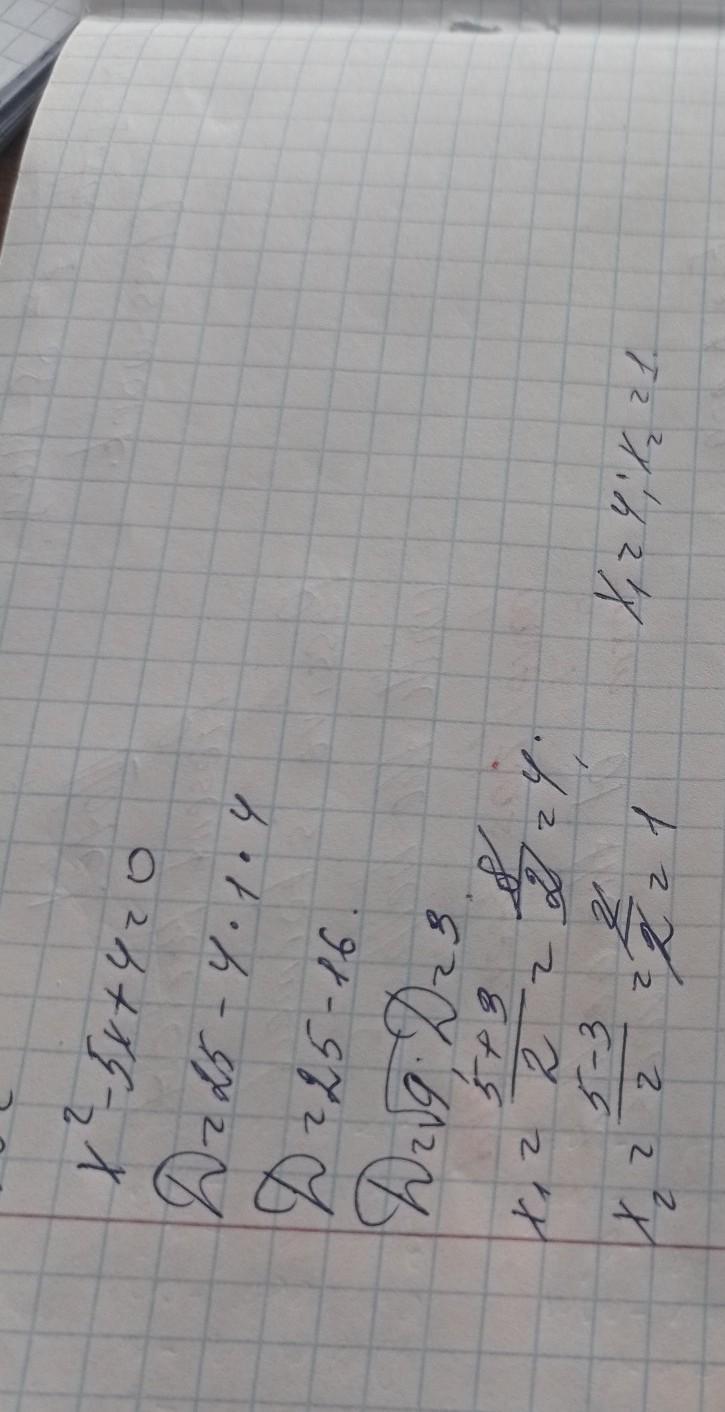 x² - 5x + 4 = 0
D = 25 - 4 · 1 · 4
D = 25 - 16.
D = √9. D = 3
x₁ = (5+3)/2 = 8/2 = 4.;
x₂ = (5-3)/2 = 2/2 = 1
x₁ = 4; x₂ = 1.